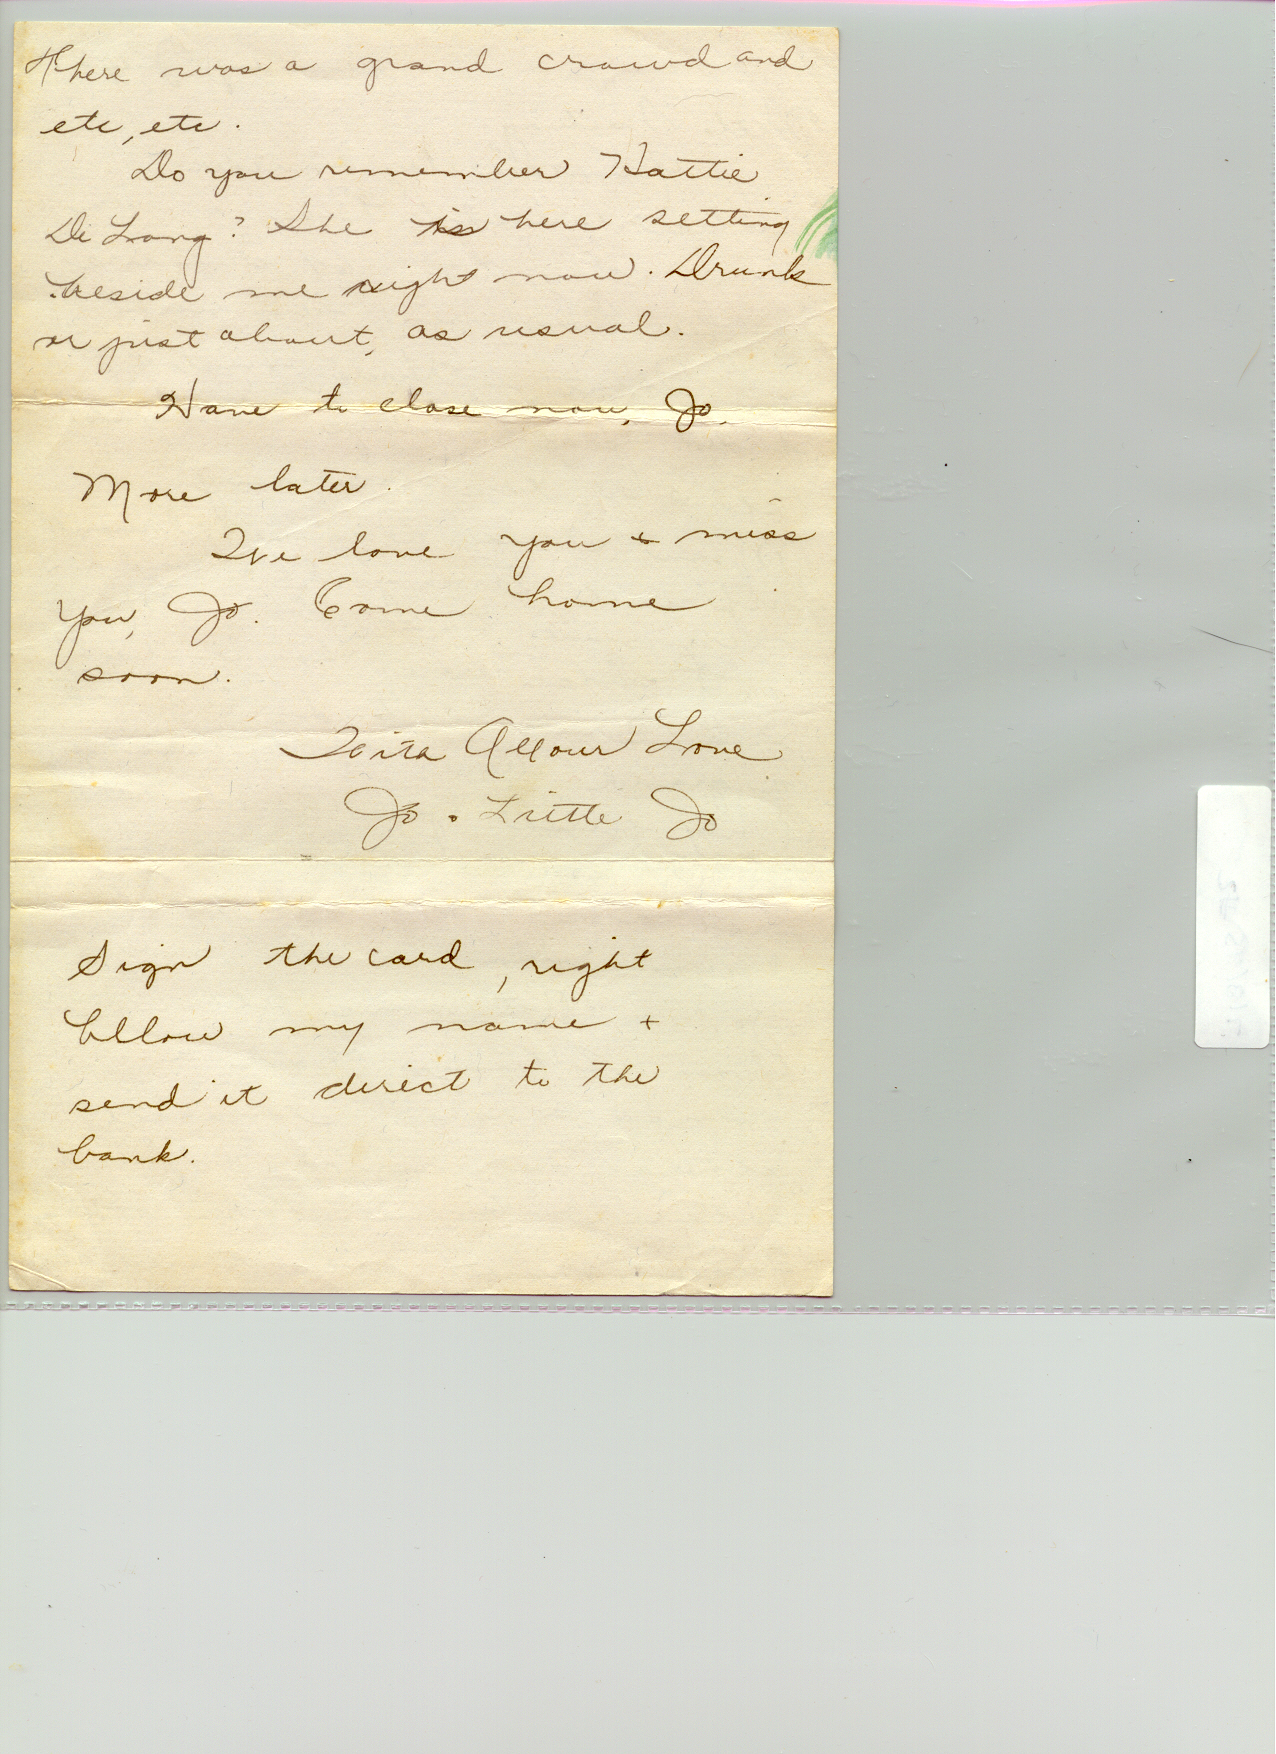 There was a grand crowd and
etc, etc.
Do you remember Hattie
De Long? She is here setting
beside me right now. Drunk
or just about, as usual.
Have to close now, Jo.
More later.
We love you & miss
you, Jo. Come home
soon.
With All our Love
Jo. Little Jo
Sign the card, right
bellow my name +
send it direct to the
bank.